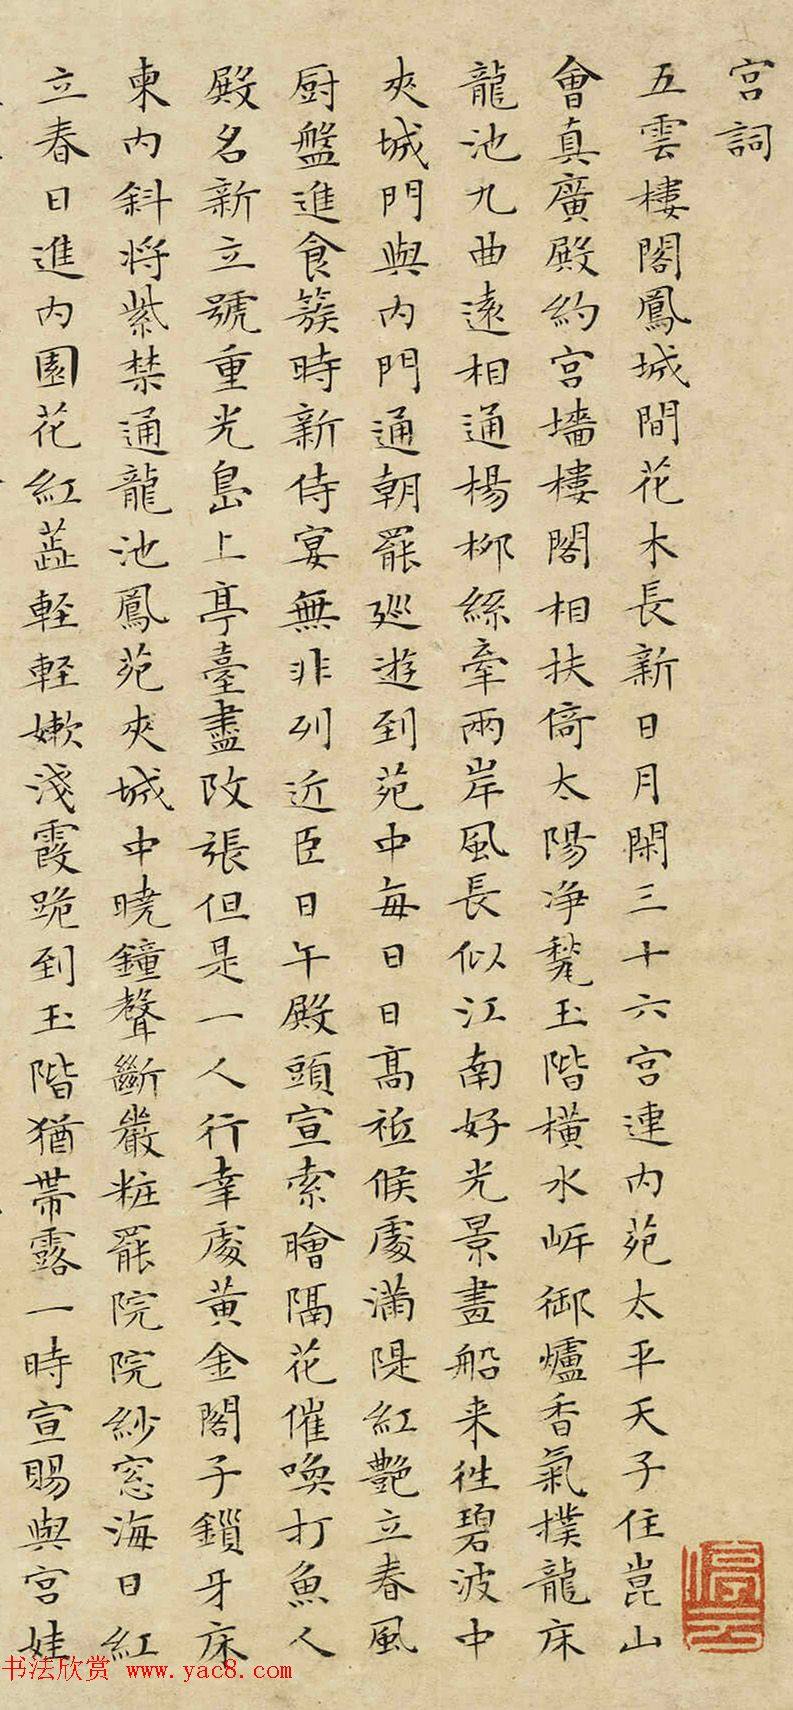 宮詞
五雲樓閣鳳城間花木長新日月閑三十六宮連內苑太平天子住崑山
會真廣殿約宮墻樓閣相扶倚太陽淨甃玉階橫水岍御爐香氣撲龍床
龍池九曲遠相通楊柳絲牽兩岸風長似江南好光景畫船来往碧波中
夾城門與內門通朝罷巡遊到苑中每日日高祗候處滿隄紅艷立春風
厨盤進食簇時新侍宴無非列近臣日午殿頭宣索膾隔花催喚打魚人
殿名新立號重光島上亭臺盡改張但是一人行幸處黃金閣子鎖牙床
東內斜將紫禁通龍池鳳苑夾城中曉鐘聲斷嚴粧罷院院紗窓海日紅
立春日進內園花紅蕋輕輕嫩淺霞跪到玉階猶帶露一時宣賜與宮娃
书法欣赏 www.yac8.com